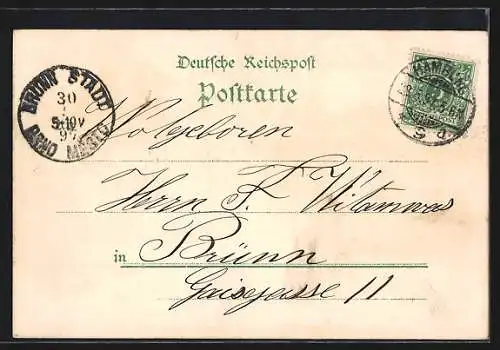 Deutsche Reichspost
Postkarte
BRÜNN STADT
30
9·10V
97
BRNO MĚSTO
HAMBURG
Wolgeboren
Herrn F. Witamwas
in Brünn
Gaisgasse 11